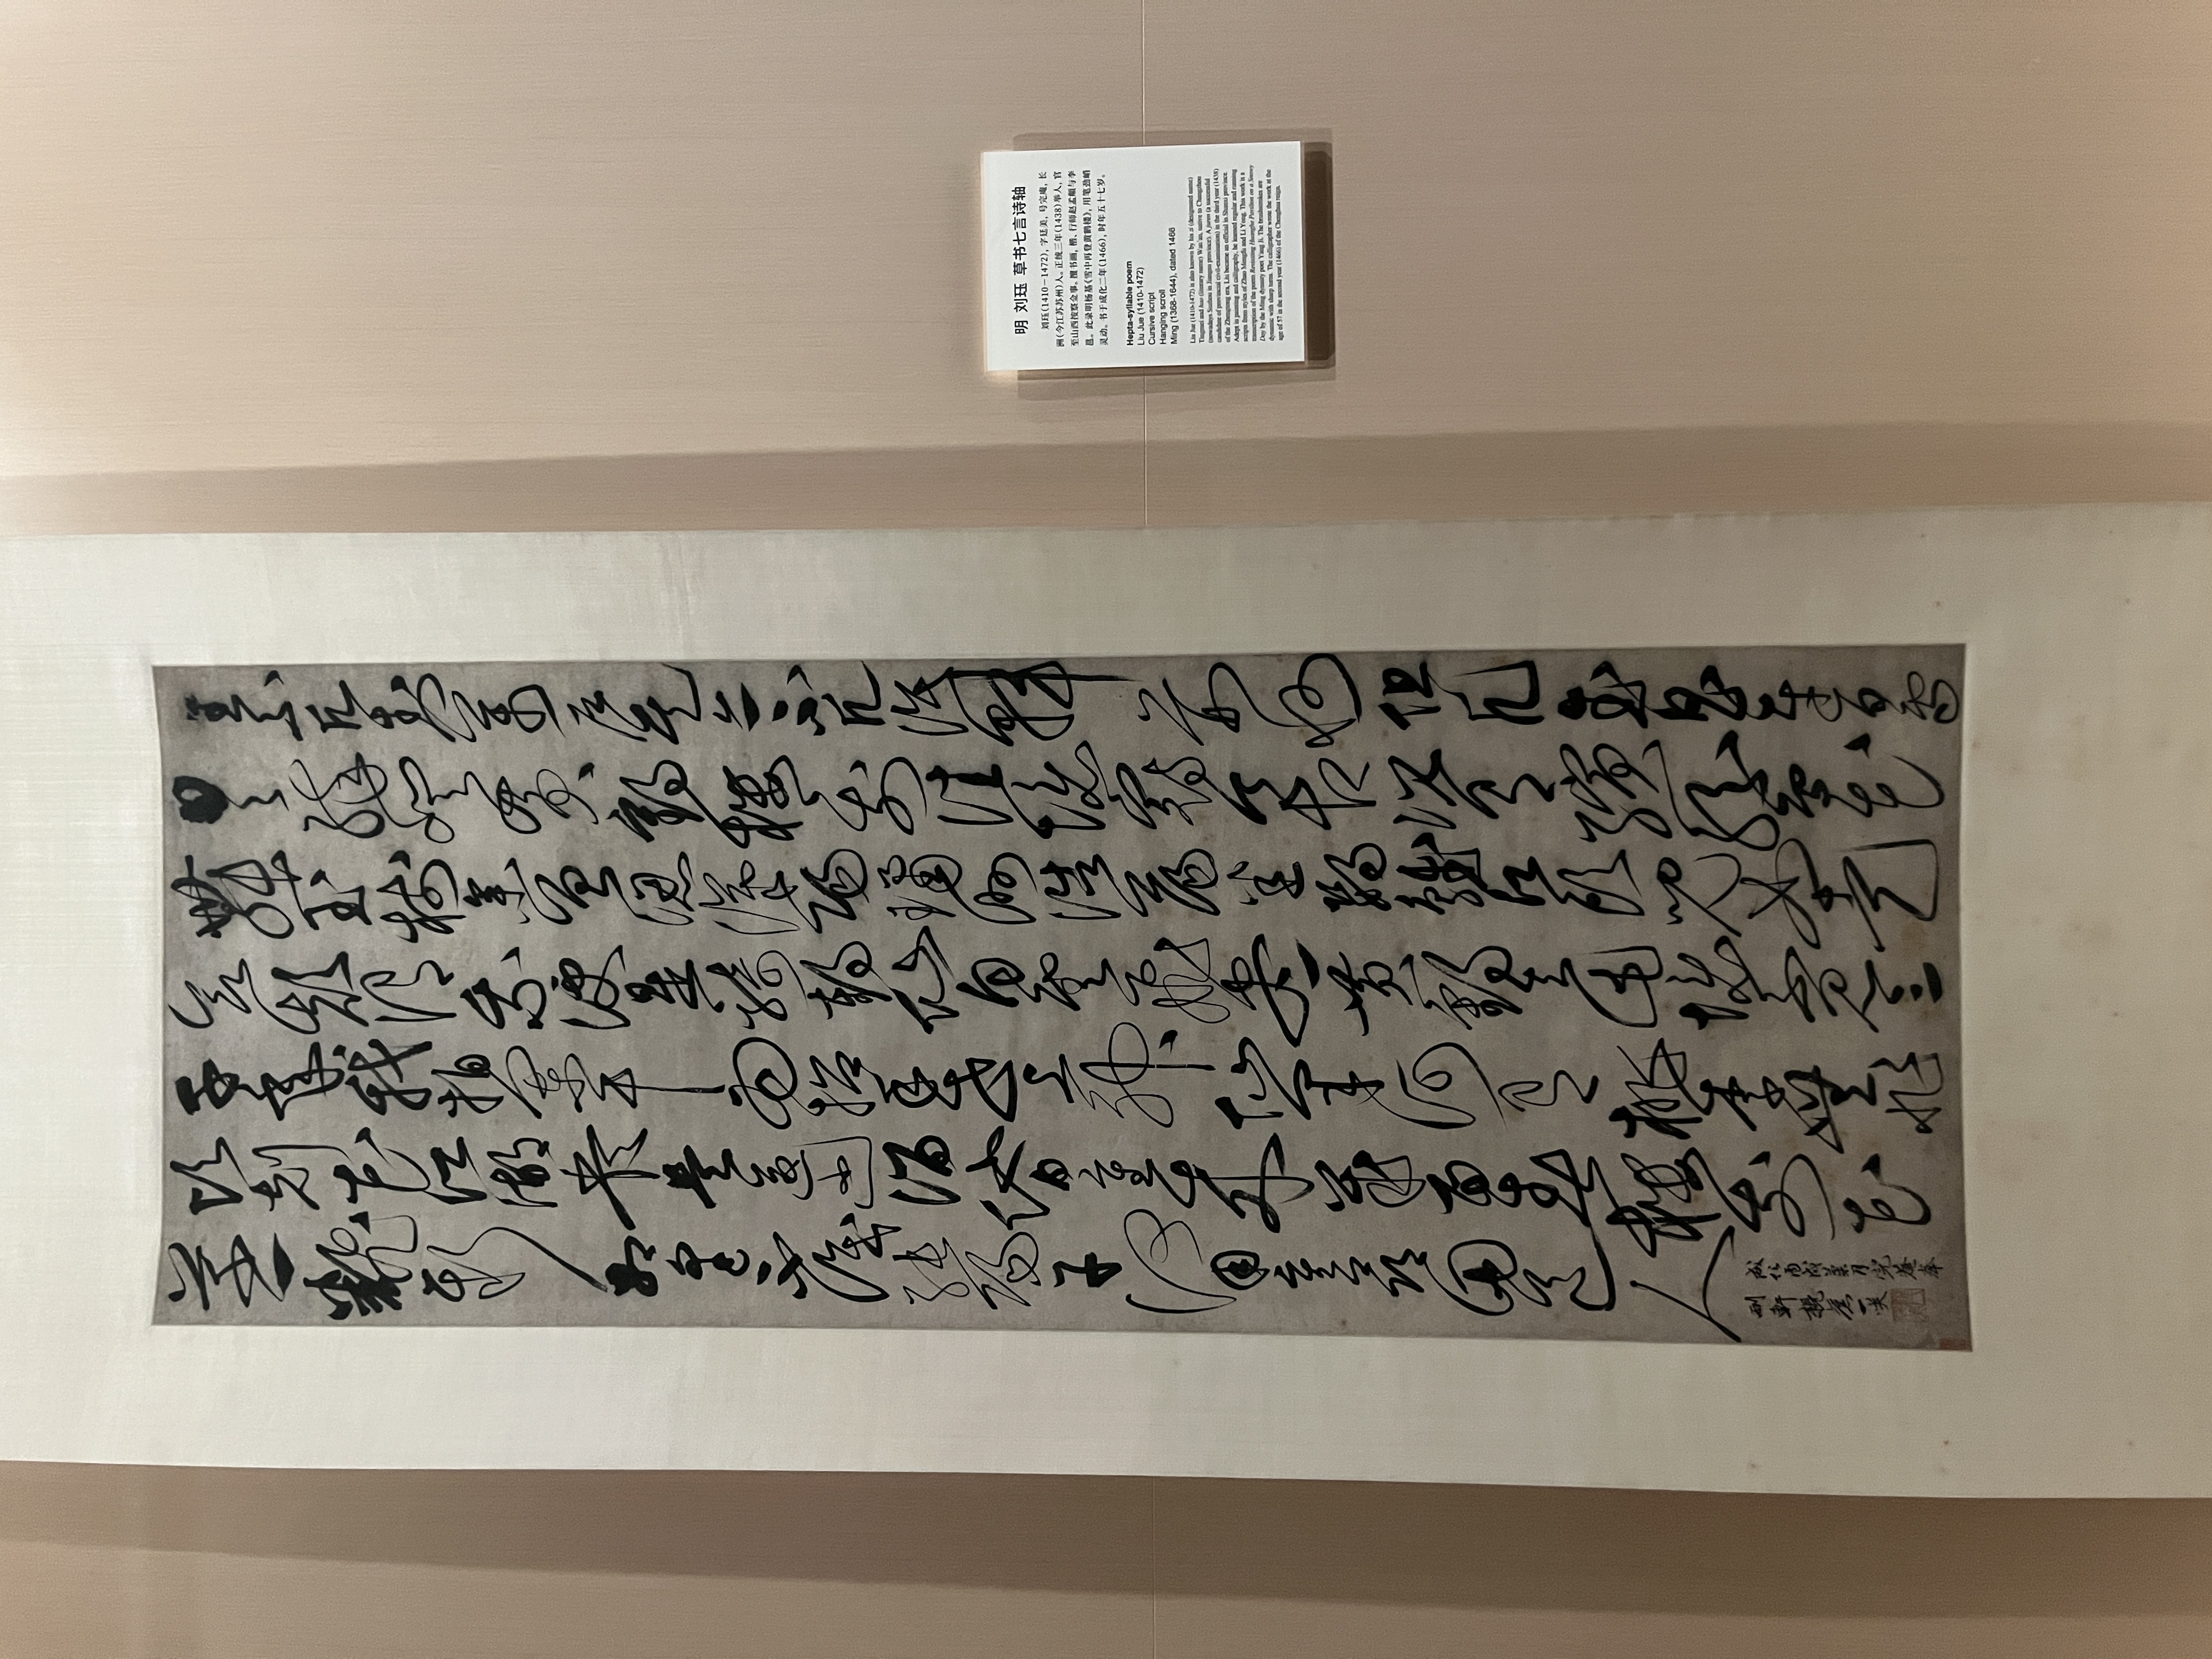 不見
日日醉登黄鶴樓前佳境窮今古況有繽紛雪花
舞玉樹參差認漢陽瓊洲浩蕩迷鸚鵡江頭
我便是騎鶴仙白雲飛盡黄鶴去此境不見三
千年我拍闌干為招手世上神仙果何有桃李無非
頃刻花江湖盡是逡巡酒他日重來百春樓前花
草一翻新相逢不識純陽子何用重尋回道人
成化丙戌菊月完菴奉
軒親家一笑
明 刘珏 草书七言诗轴
刘珏(1410－1472),字廷美,号完庵,长
洲(今江苏苏州)人。正统三年(1438)举人,官
至山西按察佥事。擅书画,楷、行师赵孟頫与李
邕。此录明杨基《雪中再登黄鹤楼》,用笔劲峭
灵动。书于成化二年(1466),时年五十七岁。
Hepta-syllable poem
Liu Jue (1410-1472)
Cursive script
Hanging scroll
Ming (1368-1644), dated 1466
Liu Jue (1410-1472) is also known by his zi (designated name)
Tingmei and hao (literary name) Wan'an, native to Changzhou
(nowadays Suzhou in Jiangsu province). A juren (a successful
candidate of provincial civil-examination) in the third year (1438)
of the Zhengtong era, Liu became an official in Shanxi province.
Adept in painting and calligraphy, he learned regular and running
scripts from styles of Zhao Mengfu and Li Yong. This work is a
transcription of the poem Revisiting Huanghe Pavilion on a Snowy
Day by the Ming dynasty poet Yang Ji. The brushstrokes are
dynamic with sharp turns. The calligrapher wrote the work at the
age of 57 in the second year (1466) of the Chenghua reign.